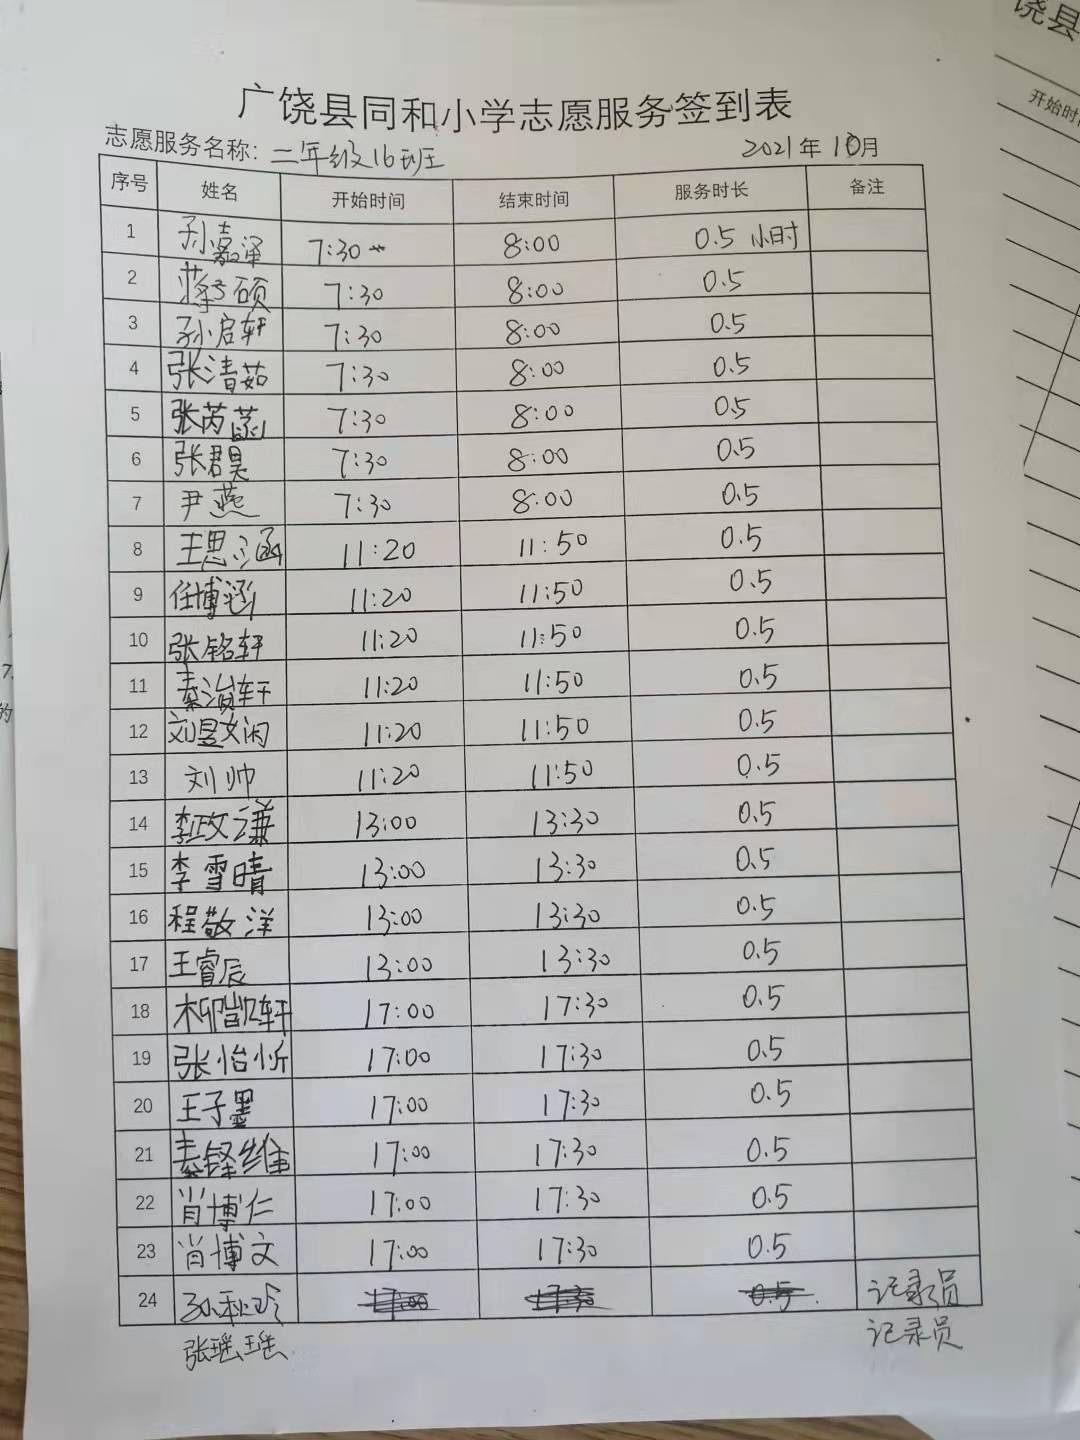 广饶县同和小学志愿服务签到表
志愿服务名称：二年级16班 2021年10月
序号 姓名 开始时间 结束时间 服务时长 备注
1 孙嘉泽 7:30 8:00 0.5小时
2 蒋硕 7:30 8:00 0.5
3 孙启轩 7:30 8:00 0.5
4 张清茹 7:30 8:00 0.5
5 张芮菡 7:30 8:00 0.5
6 张君昊 7:30 8:00 0.5
7 尹燕 7:30 8:00 0.5
8 王思涵 11:20 11:50 0.5
9 任博涵 11:20 11:50 0.5
10 张铭轩 11:20 11:50 0.5
11 秦浚轩 11:20 11:50 0.5
12 刘昱汝闲 11:20 11:50 0.5
13 刘帅 11:20 11:50 0.5
14 李政谦 13:00 13:30 0.5
15 李雪晴 13:00 13:30 0.5
16 程敬洋 13:00 13:30 0.5
17 王睿辰 13:00 13:30 0.5
18 柳凯轩 17:00 17:30 0.5
19 张怡忻 17:00 17:30 0.5
20 王子墨 17:00 17:30 0.5
21 秦铎维 17:00 17:30 0.5
22 肖博仁 17:00 17:30 0.5
23 肖博文 17:00 17:30 0.5
24 孙秋玲 17:00 17:30 0.5 记录员
张瑶瑶 记录员
饶县
开始时